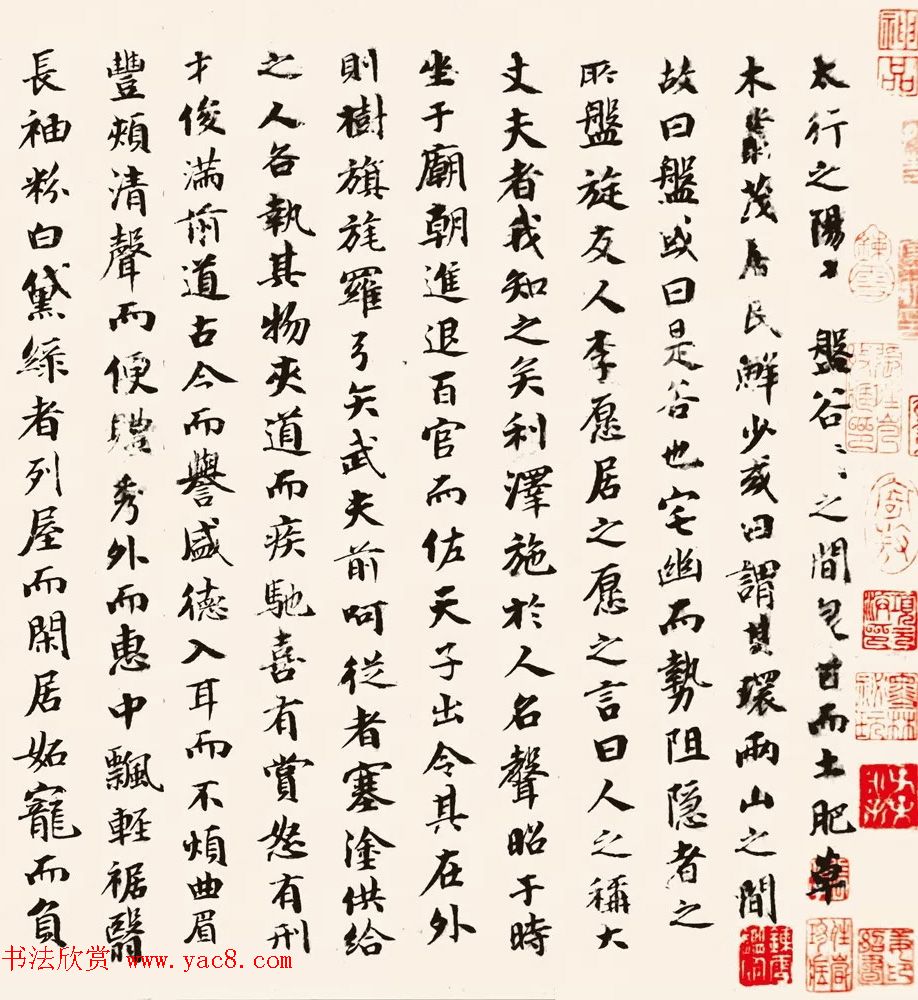 神品
太行之陽盤谷〻〻之間泉甘而土肥草
木藂茂居民鮮少或曰謂其環兩山之間
故曰盤或曰是谷也宅幽而勢阻隱者之
所盤旋友人李愿居之愿之言曰人之稱大
丈夫者我知之矣利澤施於人名聲昭于時
坐于廟朝進退百官而佐天子出令其在外
則樹旗旄羅弓矢武夫前呵從者塞塗供給
之人各執其物夾道而疾馳喜有賞怒有刑
才俊滿前道古今而譽盛德入耳而不煩曲眉
豐頰清聲而便體秀外而惠中飄輕裾翳
長袖粉白黛綠者列屋而閑居妬寵而負
书法欣赏 www.yac8.com